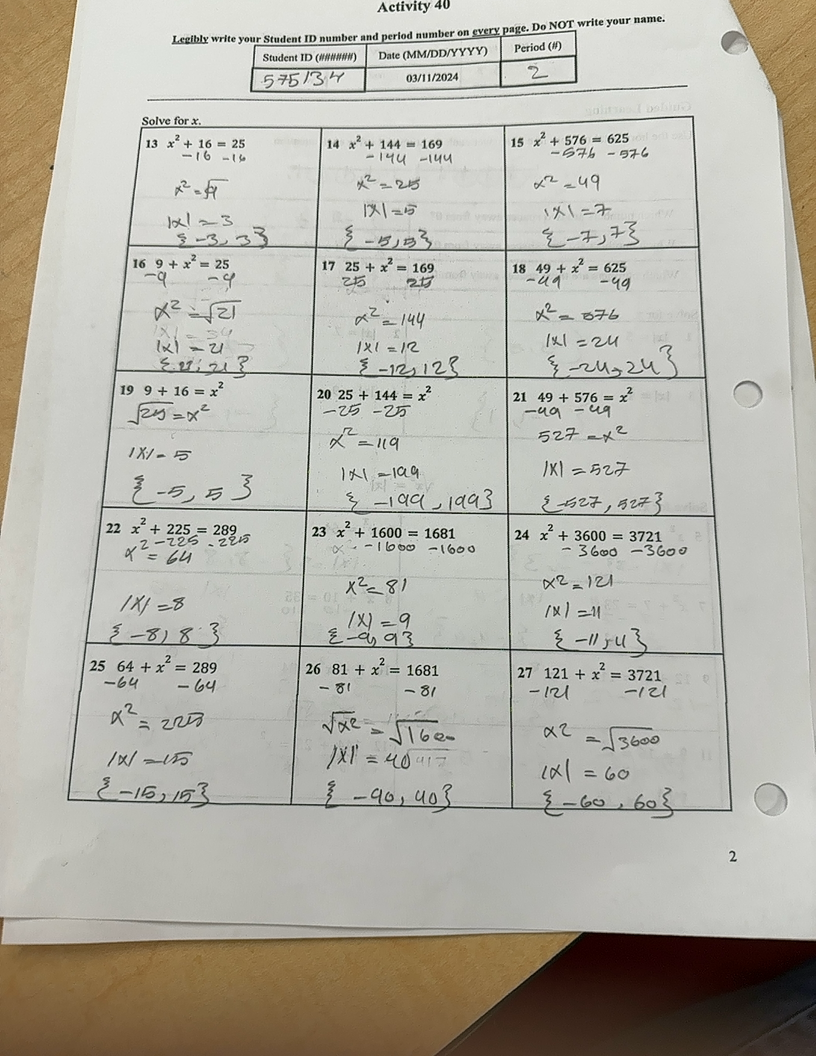 Activity 40
Legibly write your Student ID number and period number on every page. Do NOT write your name.
Student ID (######) Date (MM/DD/YYYY) Period (#)
575134 03/11/2024 2
Solve for x.
13 x² + 16 = 25
-16 -16
x² = √9
|x| = 3
{-3, 3}
14 x² + 144 = 169
-144 -144
x² = 25
|x| = 5
{-5, 5}
15 x² + 576 = 625
-576 -576
x² = 49
|x| = 7
{-7, 7}
16 9 + x² = 25
-9 -9
x² = √21
|x| = 21
17 25 + x² = 169
25 25
x² = 144
|x| = 12
{-12, 12}
18 49 + x² = 625
-49 -49
x² = 576
|x| = 24
{-24, 24}
19 9 + 16 = x²
√25 = x²
|x| = 5
{-5, 5}
20 25 + 144 = x²
-25 -25
x² = 119
|x| = 199
{-199, 199}
21 49 + 576 = x²
-49 -49
527 = x²
|x| = 527
{-527, 527}
22 x² + 225 = 289
-225 -225
x² = 64
|x| = 8
{-8, 8}
23 x² + 1600 = 1681
-1600 -1600
x² = 81
|x| = 9
{-9, 9}
24 x² + 3600 = 3721
-3600 -3600
x2 = 121
|x| = 11
{-11, 11}
25 64 + x² = 289
-64 -64
x² = 225
|x| = 15
{-15, 15}
26 81 + x² = 1681
-81 -81
√x² = √1600
|x| = 40
{-40, 40}
27 121 + x² = 3721
-121 -121
x2 = √3600
|x| = 60
{-60, 60}
2